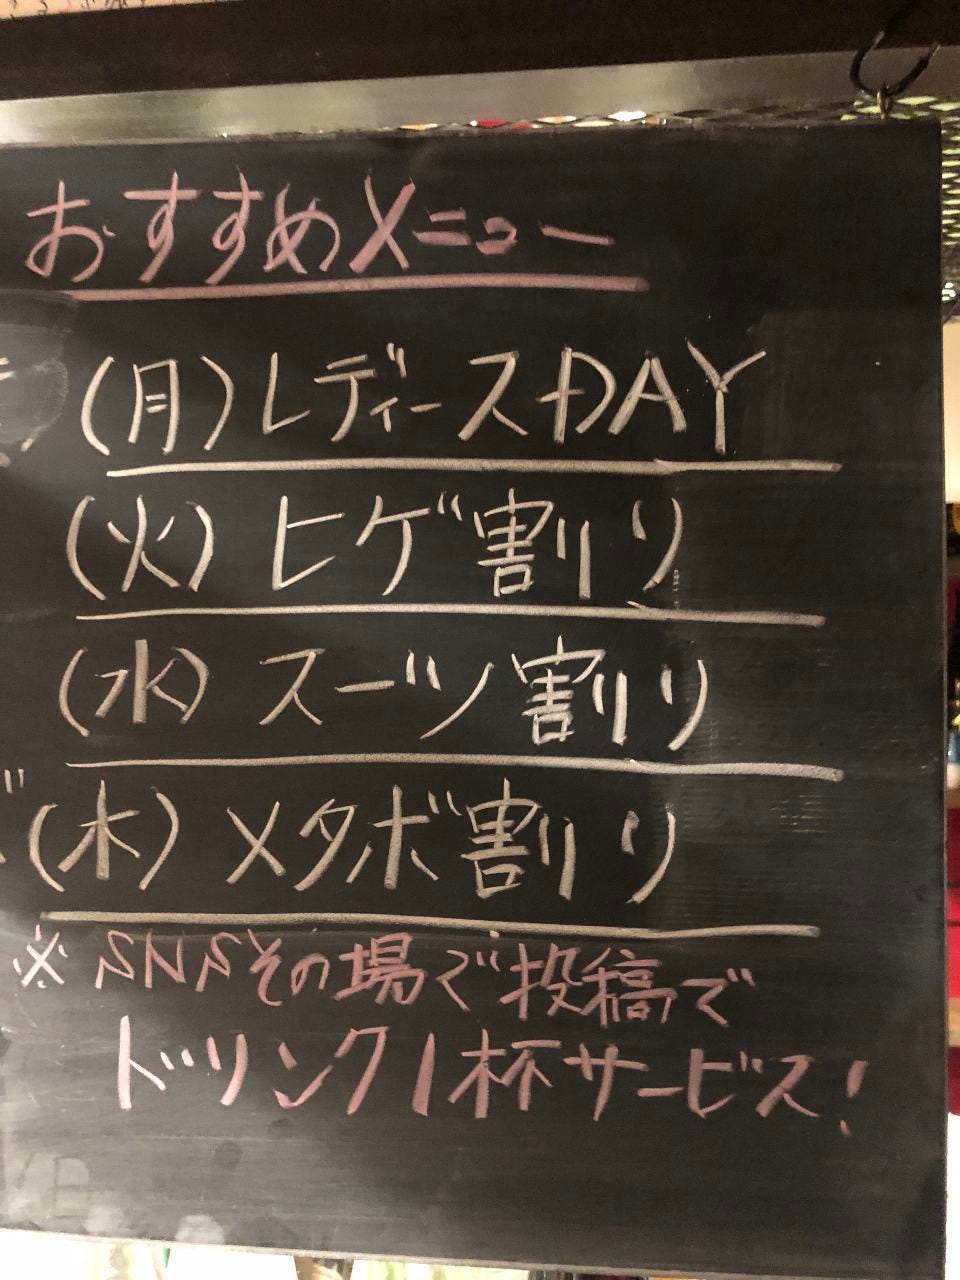 おすすめメニュー
(月)レディースDAY
(火)ヒゲ割り
(水)スーツ割り
(木)メタボ割り
※SNSその場で投稿で
ドリンク1杯サービス!